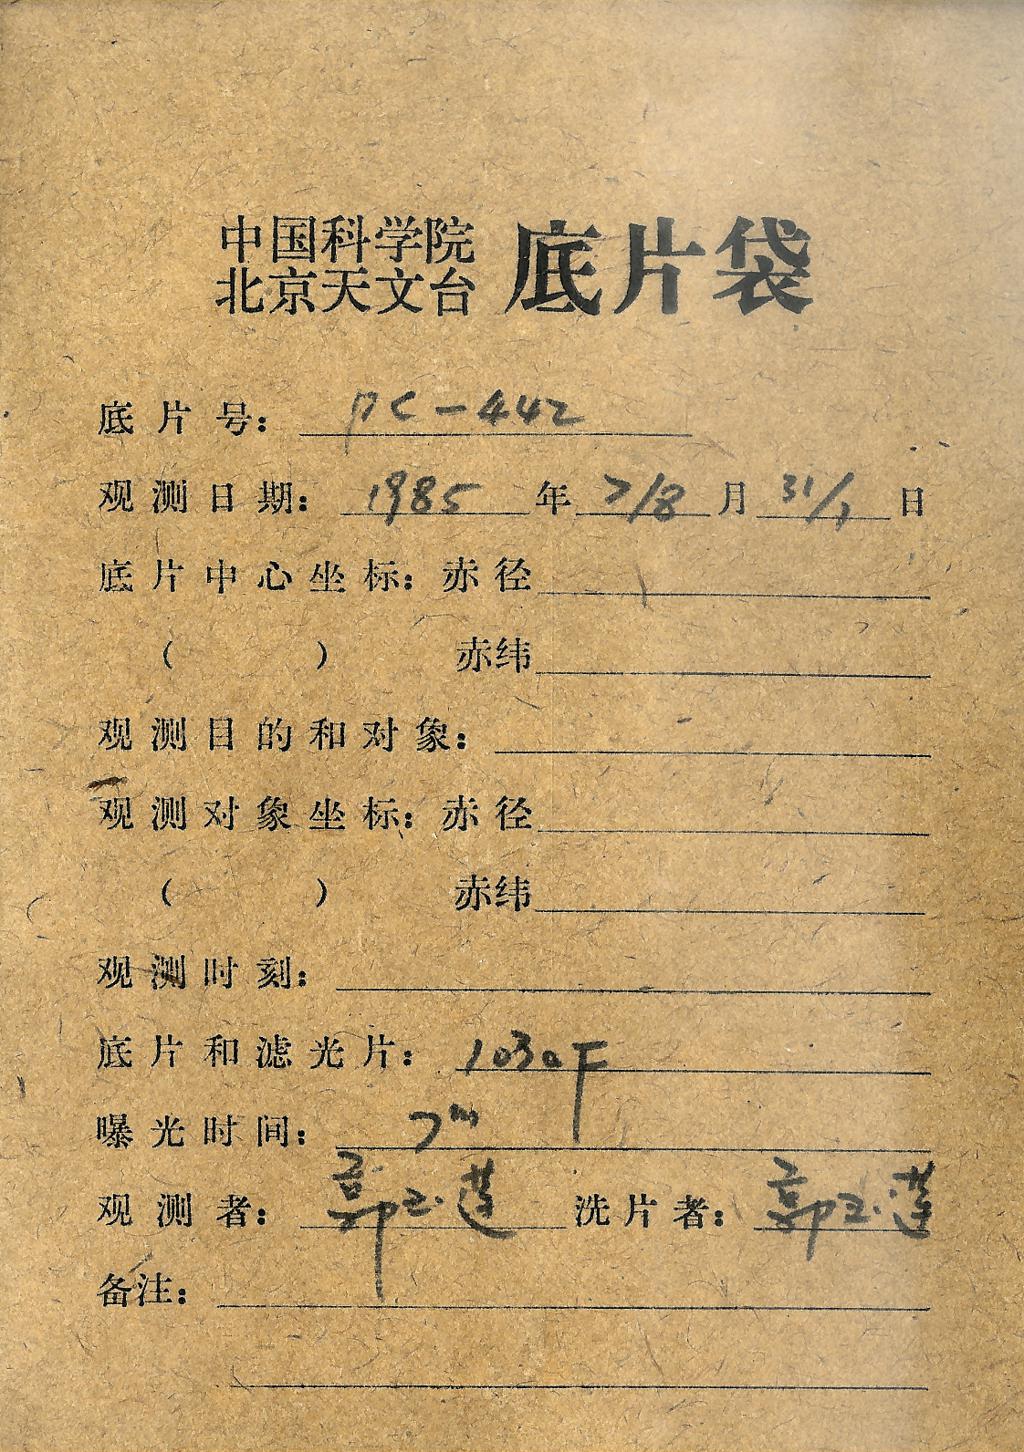 中国科学院
北京天文台 底片袋
底片号： PC-442
观测日期： 1985 年 7/8 月 31/1 日
底片中心坐标：赤径
（ ） 赤纬
观测目的和对象：
观测对象坐标：赤径
（ ） 赤纬
观测时刻：
底片和滤光片： 103aF
曝光时间： 7m
观测者： 郭玉莲 洗片者： 郭玉莲
备注：